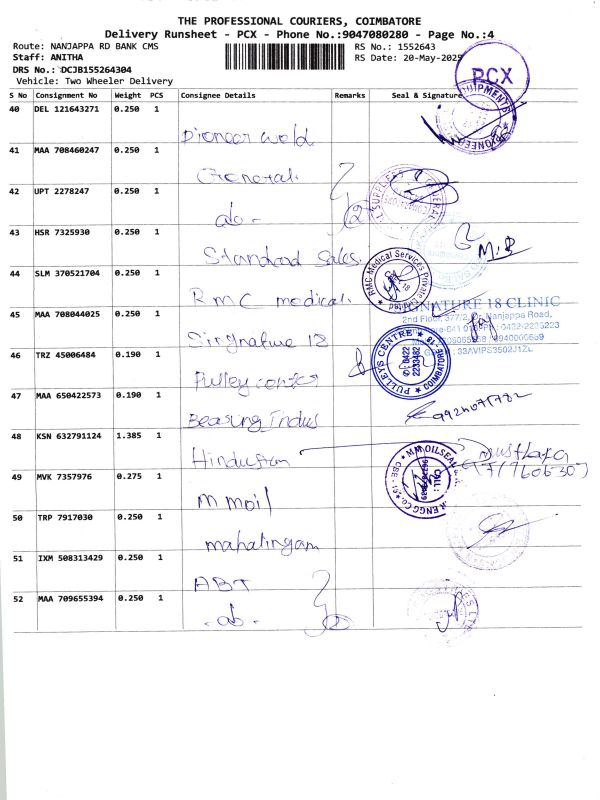 THE PROFESSIONAL COURIERS, COIMBATORE
Delivery Runsheet - PCX - Phone No.:9047080280 - Page No.:4
Route: NANJAPPA RD BANK CMS
RS No.: 1552643
Staff: ANITHA
RS Date: 20-May-2025
DRS No.: DCJB155264304
Vehicle: Two Wheeler Delivery
PCX
S No Consignment No Weight PCS Consignee Details Remarks Seal & Signature
40 DEL 121643271 0.250 1 Pioneer weld
41 MAA 708460247 0.250 1 General
42 UPT 2278247 0.250 1 do -
43 HSR 7325930 0.250 1 Standard Sales
44 SLM 370521704 0.250 1 RMC medical
RMC-Medical Services Private Limited
45 MAA 708044025 0.250 1 Singnature 18
SIGNATURE 18 CLINIC
2nd Floor, 377/2, Dr. Nanjappa Road,
46 TRZ 45006484 0.190 1 Pulley centre
PULLEYS CENTRE
COIMBATORE - 18
0422
2233482
47 MAA 650422573 0.190 1 Bearing Indus
9924071782
48 KSN 632791124 1.385 1 Hindustan
Mustafa
49 MVK 7357976 0.275 1 m moil
50 TRP 7917030 0.250 1 mahalingam
51 IXM 508313429 0.250 1 ABT
52 MAA 709655394 0.250 1 - do -